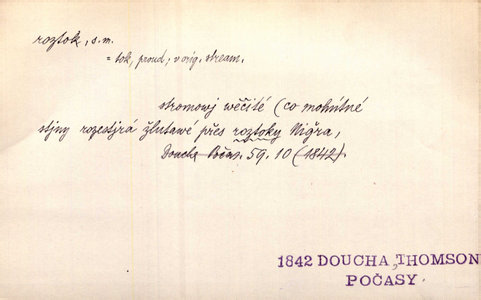 roztok, s. m.
= tok, proud, v orig. stream.
stromowj wěčité (co mohútné
stjny rozestjrá žlutawé přes roztoky Nigra,
Doucha Počas. 59. 10 (1842).
1842 DOUCHA, THOMSON
POČASY